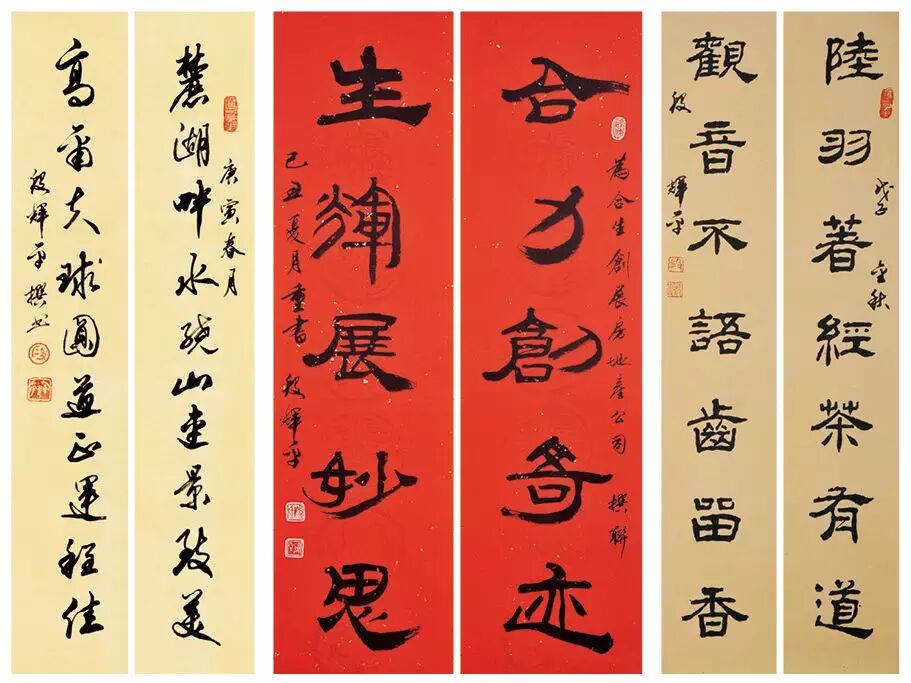 陸羽著經茶有道
戊子 金秋
觀音不語齒留香
段 輝平
合力創奇迹
為合生創展房地產公司 撰聯
生輝展妙思
己丑夏月重書 段輝平
麓湖畔水繞山連景致美
庚寅春月
高爾夫球圓道正運程佳
段輝平撰書